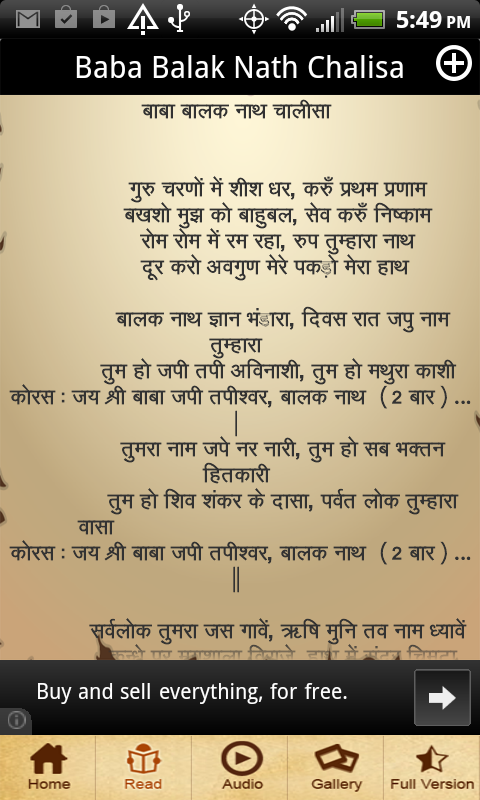 5:49 PM
Baba Balak Nath Chalisa
बाबा बालक नाथ चालीसा
गुरु चरणों में शीश धर, करुँ प्रथम प्रणाम
बखशो मुझ को बाहुबल, सेव करुँ निष्काम
रोम रोम में रम रहा, रुप तुम्हारा नाथ
दूर करो अवगुण मेरे पकड़ो मेरा हाथ
बालक नाथ ज्ञान भंडारा, दिवस रात जपु नाम
तुम्हारा
तुम हो जपी तपी अविनाशी, तुम हो मथुरा काशी
कोरस : जय श्री बाबा जपी तपीश्वर, बालक नाथ (2 बार) ...
|
तुमरा नाम जपे नर नारी, तुम हो सब भक्तन
हितकारी
तुम हो शिव शंकर के दासा, पर्वत लोक तुम्हारा
वासा
कोरस : जय श्री बाबा जपी तपीश्वर, बालक नाथ (2 बार) ...
||
सर्वलोक तुमरा जस गावें, ऋषि मुनि तव नाम ध्यावें
हाथ में सुंदर चिमटा
Buy and sell everything, for free.
Home Read Audio Gallery Full Version